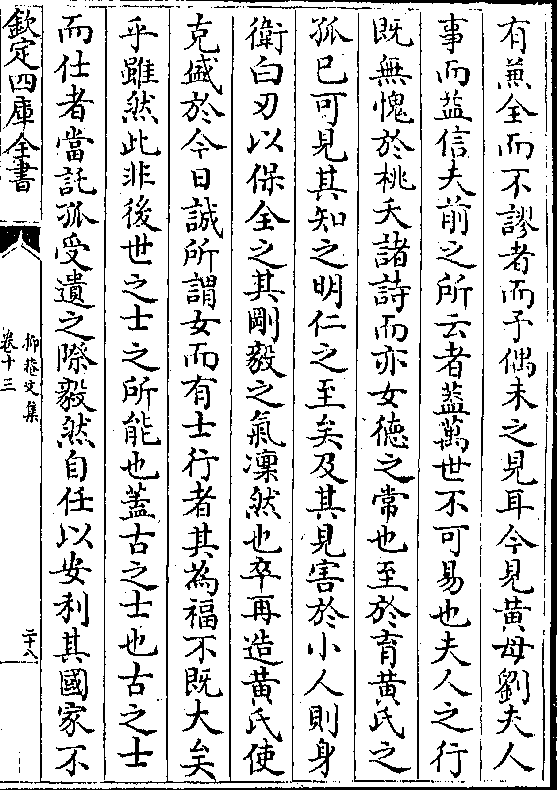 有兼全而不謬者而予偶未之見耳今見黄母劉夫人
事而益信夫前之所云者葢萬世不可易也夫人之行
既無愧於桃夭諸詩而亦女德之常也至於育黄氏之
孤已可見其知之明仁之至矣及其見害於小人則身
衛白刃以保全之其剛毅之氣凜然也卒再造黄氏使
克盛於今日誠所謂女而有士行者其為福不既大矣
乎雖然此非後世之士之所能也蓋古之士也古之士
而仕者當託孤受遺之際毅然自任以安利其國家不
欽定四庫全書
抑菴文集
卷十三
二十八